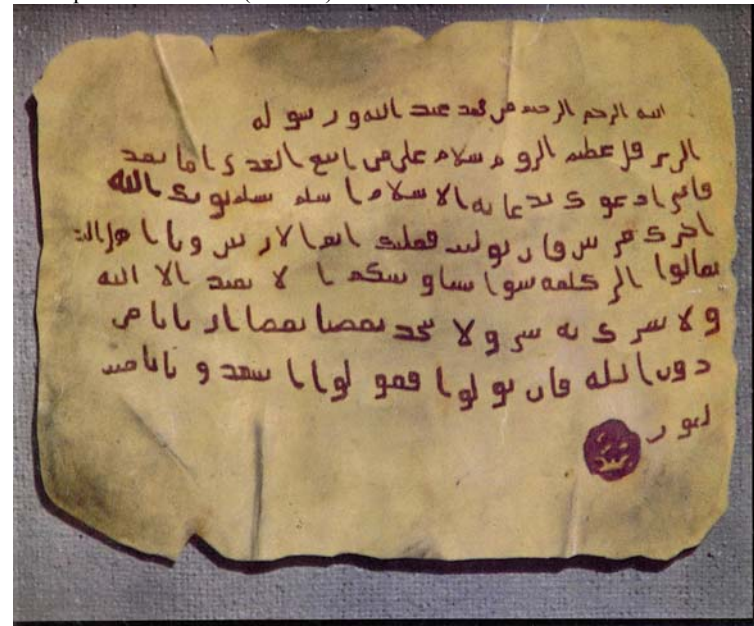 الله الرحمن الرحيم من محمد عبد الله و رسو له
الى هر قل عظيم الروم سلام على من اتبع الهدى اما بعد
فانى ادعو ك بدعا يه الا سلام ا سلم تسلم يوتك الله
اجرك مرتين فان توليت فعليك اثم الار يسين ويا ا هل الكتب
تعالوا الى كلمه سوا بيننا و بينكم ا لا نعبد الا الله
و لا نشرك به شى و لا يتخذ بعضنا بعضا ار بابا من
دون الله فان تو لوا فقو لوا ا شهدو بانا مس
لمو ن